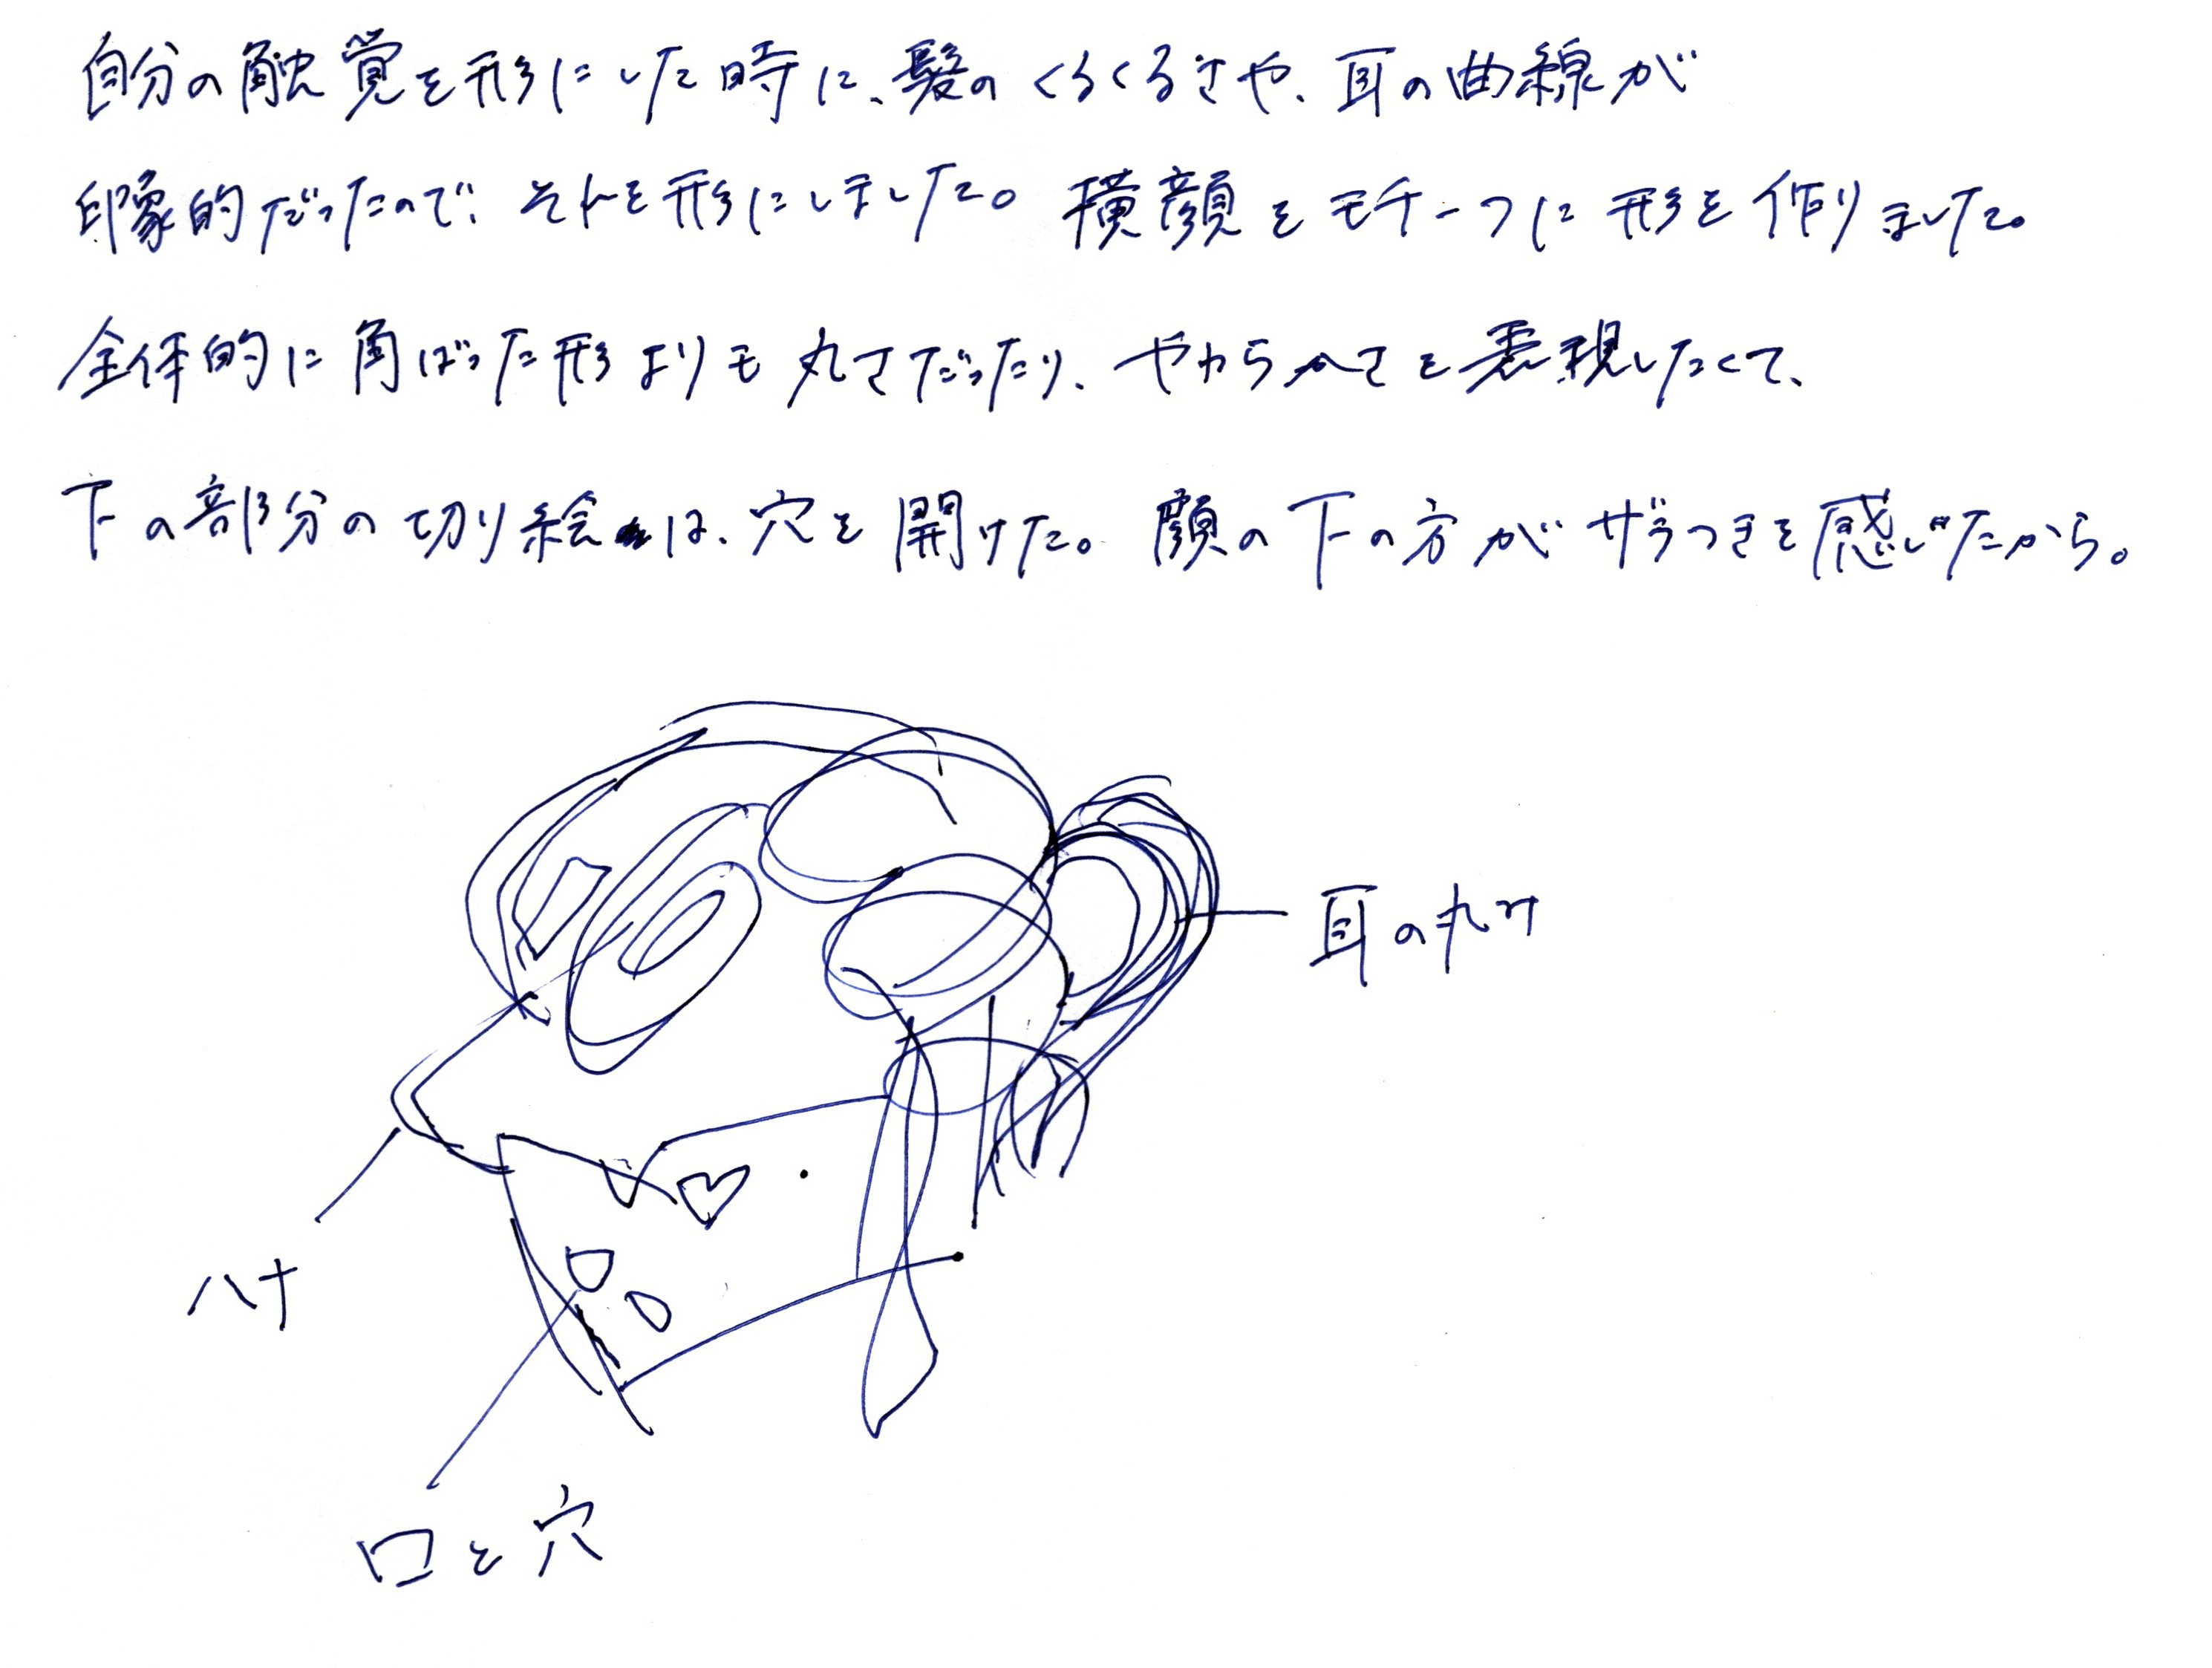 自分の触覚を形にした時に、髪のくるくるさや、耳の曲線が
印象的だったので、それを形にしました。横顔をモチーフに形を作りました。
全体的に角ばった形よりも丸さだったり、やわらかさを表現したくて、
下の部分の切り絵は、穴を開けた。顔の下の方がザラつきを感じたから。
耳の丸み
ハナ
口と穴